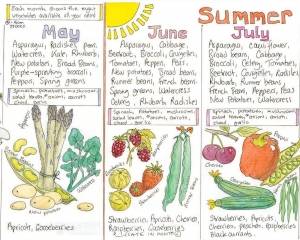 Each month, shows the major
vegetables available of your need
May
Asparagus, Radishes, peas,
Watercress, Rhubarb
New potatoes, Broad Beans,
Purple-sprouting broccoli,
Peppers, Spring greens
Spinach, potatoes, mushrooms,
salad leaves, onions, carrots,
chard, garlic
New potatoes
Apricots, Gooseberries
June
Asparagus, Cabbage,
Beetroot, Broccoli, Courgettes,
Tomatoes, Peppers, Peas,
New potatoes, Broad beans,
Runner beans, French
beans, Spring greens, Watercress,
Celery, Rhubarb, Radishes
Spinach, potatoes, mushrooms,
salad leaves, onions, carrots,
chard, garlic
Strawberries, Apricots, Cherries,
Raspberries, Gooseberries
Summer
July
Asparagus, Cauliflower,
Broad beans, Cabbage,
Broccoli, Celery, Tomatoes,
Beetroot, Courgettes, Radishes,
Rhubarb, Runner beans,
French beans, Peppers, Peas
New Potatoes, Watercress
Spinach, potatoes, mushrooms,
salad leaves, onions, carrots,
chard, garlic
Cherries
Strawberries, Apricots,
Cherries, Peaches, Raspberries
Blackcurrants